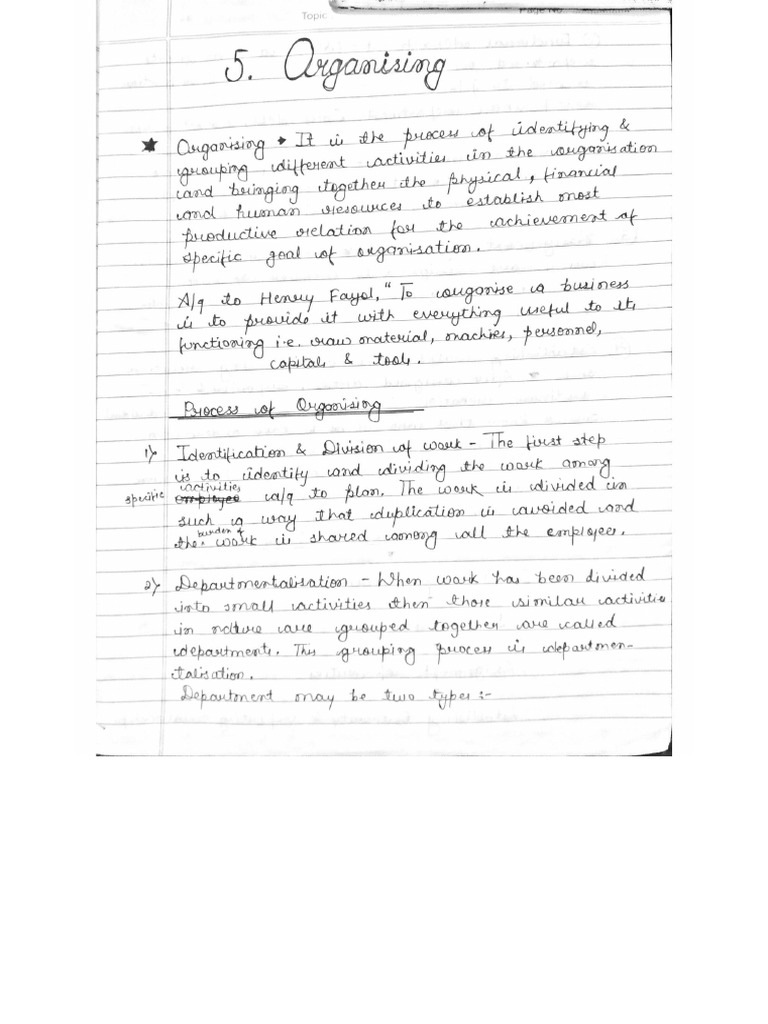 Topic
Page No.
5. Organising
★ Organising → It is the process of identifying &
grouping different activities in the organisation
and bringing together the physical, financial
and human resources to establish most
productive relation for the achievement of
specific goal of organisation.
A/q to Henry Fayol, "To organise a business
is to provide it with everything useful to its
functioning i.e. raw material, machies, personnel,
capitals & tools.
Process of Organising
1) Identification & Division of work - The first step
is to identify and dividing the work among
specific activities employee a/q to plan. The work is divided in
such a way that duplication is avoided and
the burden of work is shared among all the employees.
2) Departmentalisation - When work has been divided
into small activities then those similar activities
in nature are grouped together are called
departments. This grouping process is departmen-
talisation.
Department may be two types :-